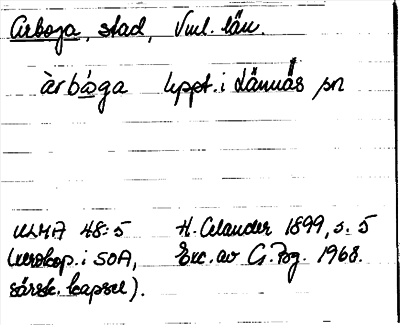 Arboga, stad, Vml. län.
àrbóga uppt. i Lännäs sn
ULMA 48:5 H. Celander 1899, s. 5
(xerokop. i SOA, Exc. av G. Bg. 1968.
särsk. kapsel).